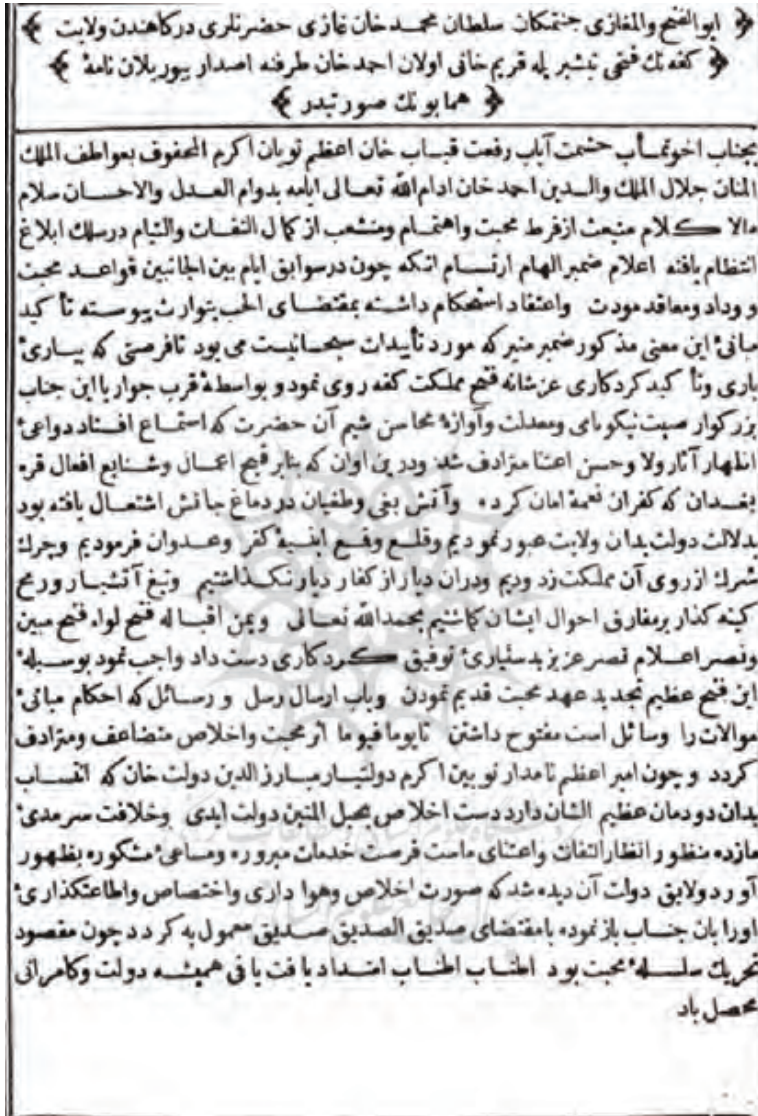 ﴿ ابوالفتح والمغازی جنتمکان سلطان محمد خان غازی حضرتلری درکاهندن ولایت ﴾
﴿ کفه نك فتحی تبشیریله قریم خانی اولان احمد خان طرفنه اصدار بیوریلان نامهٔ ﴾
﴿ همایونك صورتیدر ﴾
بجناب اخوتمأب حشمت آیاب رفعت قباب خان اعظم نویان اکرم المحفوف بعواطف الملك
المنان جلال الملك والدین احمد خان ادام الله تعالی ایامه بدوام العدل والاحسان سلام
مالا کلام منبعث از فرط محبت واهتمام ومنشعب از کمال التفات والتیام درسلك ابلاغ
انتظام یافته اعلام ضمیر الهام ارتسام انکه چون درسوابق ایام بین الجانبین قواعد محبت
و وداد ومعاقد مودت واعتقاد استحکام داشته بمقتضای الحب یتوارث پیوسته تأکید
مبانیٔ این معنی مذکور ضمیر منیر که مورد تأییدات سبحانیست می بود تافرصتی که بیاریٔ
باری وتأکید کردکاری عزشانه فتح مملکت کفه روی نمود و بواسطهٔ قرب جوار با این جناب
بزرکوار صیت نیکونامی ومعدلت وآوازهٔ محاسن شیم آن حضرت که استماع افتاد دواعیٔ
اظهار آثار ولا وحسن اعتنا مترادف شد ودرین اوان که بنابر قبح اعمال وشنایع افعال قره
بغدان که کفران نعمهٔ امان کرده وآتش بغی وطغیان در دماغ جانش اشتعال یافته بود
بدلالت دولت بدان ولایت عبور نمودیم وقلع وقمع ابنیهٔ کفر وعدوان فرمودیم وچرك
شرك ازروی آن مملکت زدودیم ودران دیار از کفار دیار نکذاشتیم وتیغ آتشبار ورمح
کینه کذار برمفارق احوال ایشان کماشتیم بحمدالله تعالی ویمن اقباله فتح لواء فتح مبین
ونصر اعلام نصر عزیز بدستیاریٔ توفیق کردکاری دست داد واجب نمود بوسیلهٔ
این فتح عظیم تجدید عهد محبت قدیم نمودن وباب ارسال رسل و رسائل که احکام مبانیٔ
موالات را وسائل است مفتوح داشتن تایوما فیوما اثر محبت واخلاص متضاعف ومترادف
کردد و چون امیر اعظم نامدار نویین اکرم دولتیار مبارز الدین دولت خان که انتساب
بدان دودمان عظیم الشان دارد دست اخلاص بحبل المتین دولت ابدی وخلافت سرمدیٔ
مازده منظور انظار التفات واعتنای ماست فرصت خدمات مبروره ومساعیٔ مشکوره بظهور
آورد ولایق دولت آن دیده شد که صورت اخلاص وهواداری واختصاص واطاعتکذاریٔ
اورا بان جناب باز نموده بامقتضای صدیق الصدیق صدیق معمول به کردد چون مقصود
تحریك سلسلهٔ محبت بود اطناب اطناب امتداد یافت باقی همیشه دولت وکامرانی
محصل باد